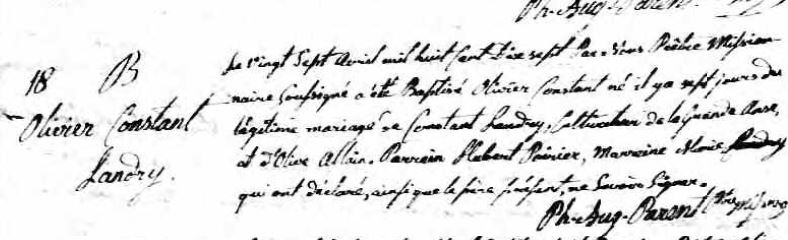 Ph-Aug-Parent
18 B
Olivier Constant
Landry.
Le vingt Sept Avril mil huit Cent Dix sept Par-Nous Prêtre Mission-
naire Soussigné a été Baptisé Olivier Constant né il ya sept jours du
légitime mariage de Constant Landry, Cultivateur de la Grande Anse,
et d'Olive Allain. Parrain Hubert Poirier, Marraine Marie Landry
qui ont déclaré, ainsi que le père présent, ne Savoir Signer.
Ph-Aug-Parent Ptre Miss